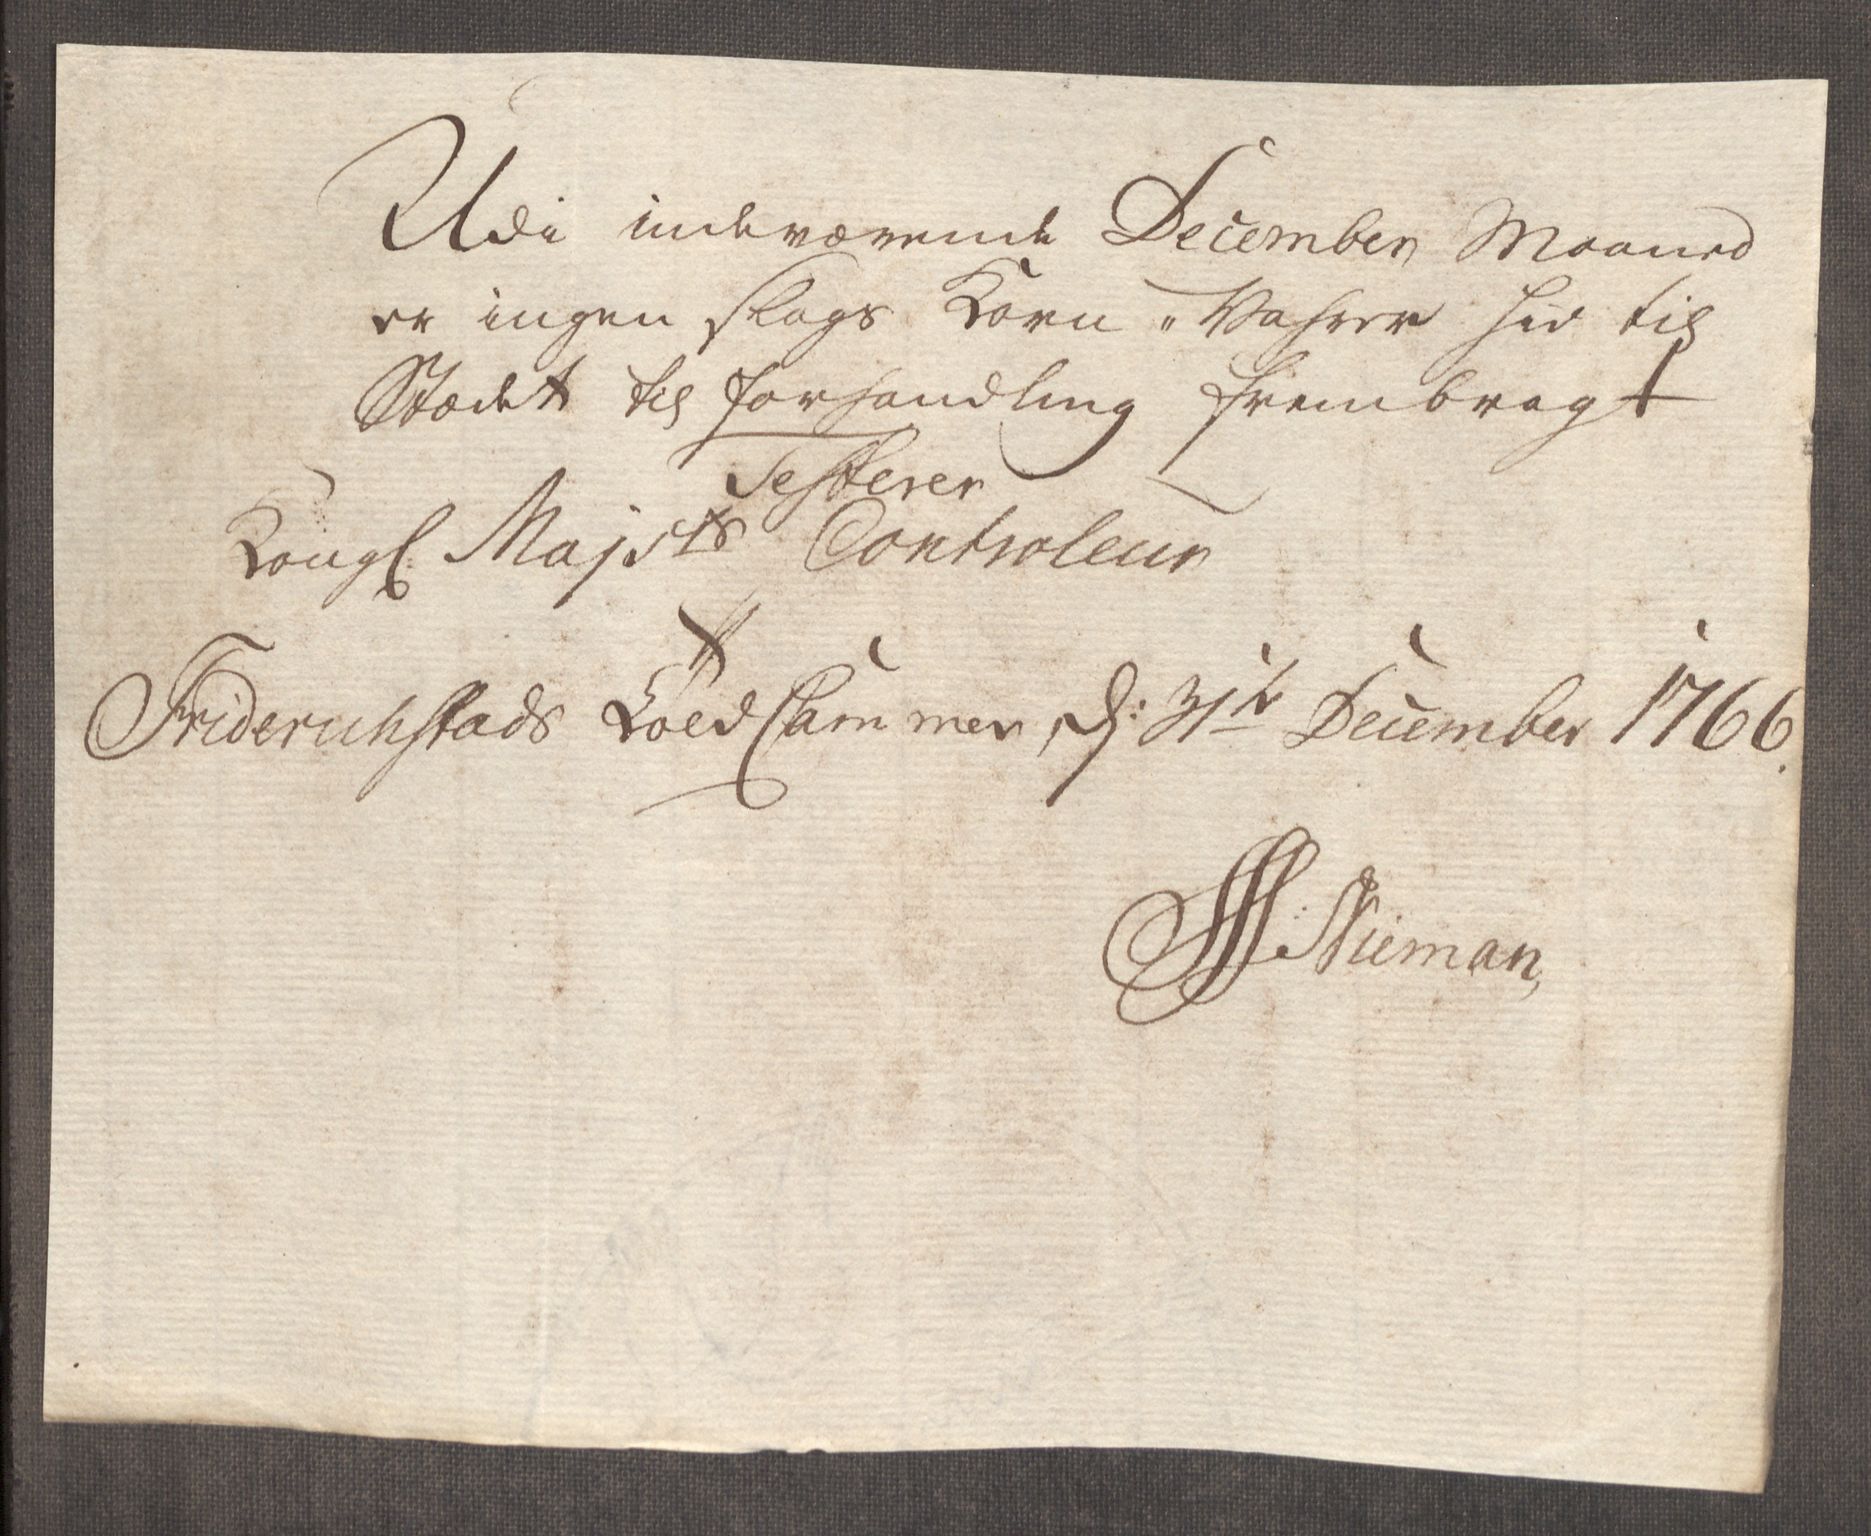 Udi indeværende December Maaned
er ingen slags Korn-Vahrer hid til
Stædet til forhandling frembragt
Testerer
Kongl Majsts Controleur
Friderichstads Toldkammer, d: 31te December 1766.
Nieman,